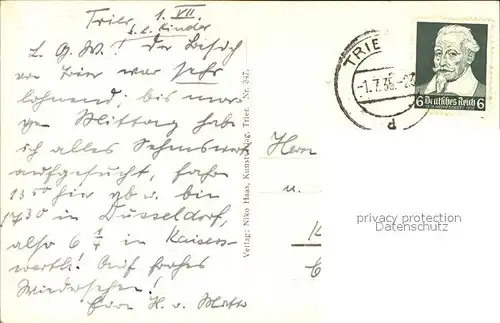 Trier 1. VII.
L. G. W.! d. l. Kinder
Der Besuch
von Trier war sehr
lohnend; bis mor-
gen Mittag habe
ich alles Sehenswerte
aufgesucht, fahre
13 50 hier ab u. bin
1730 in Düsseldorf,
also 6 1/4 in Kaisers-
werth! Auf frohes
Wiedersehen!
Eure H. u.
Verlag: Niko Haas, Kunstverlag, Trier. Nr. 347.
TRIE
-1.7.35.-2
6 Deutsches Reich 6
Herrn
u.
K
privacy protection
Datenschutz